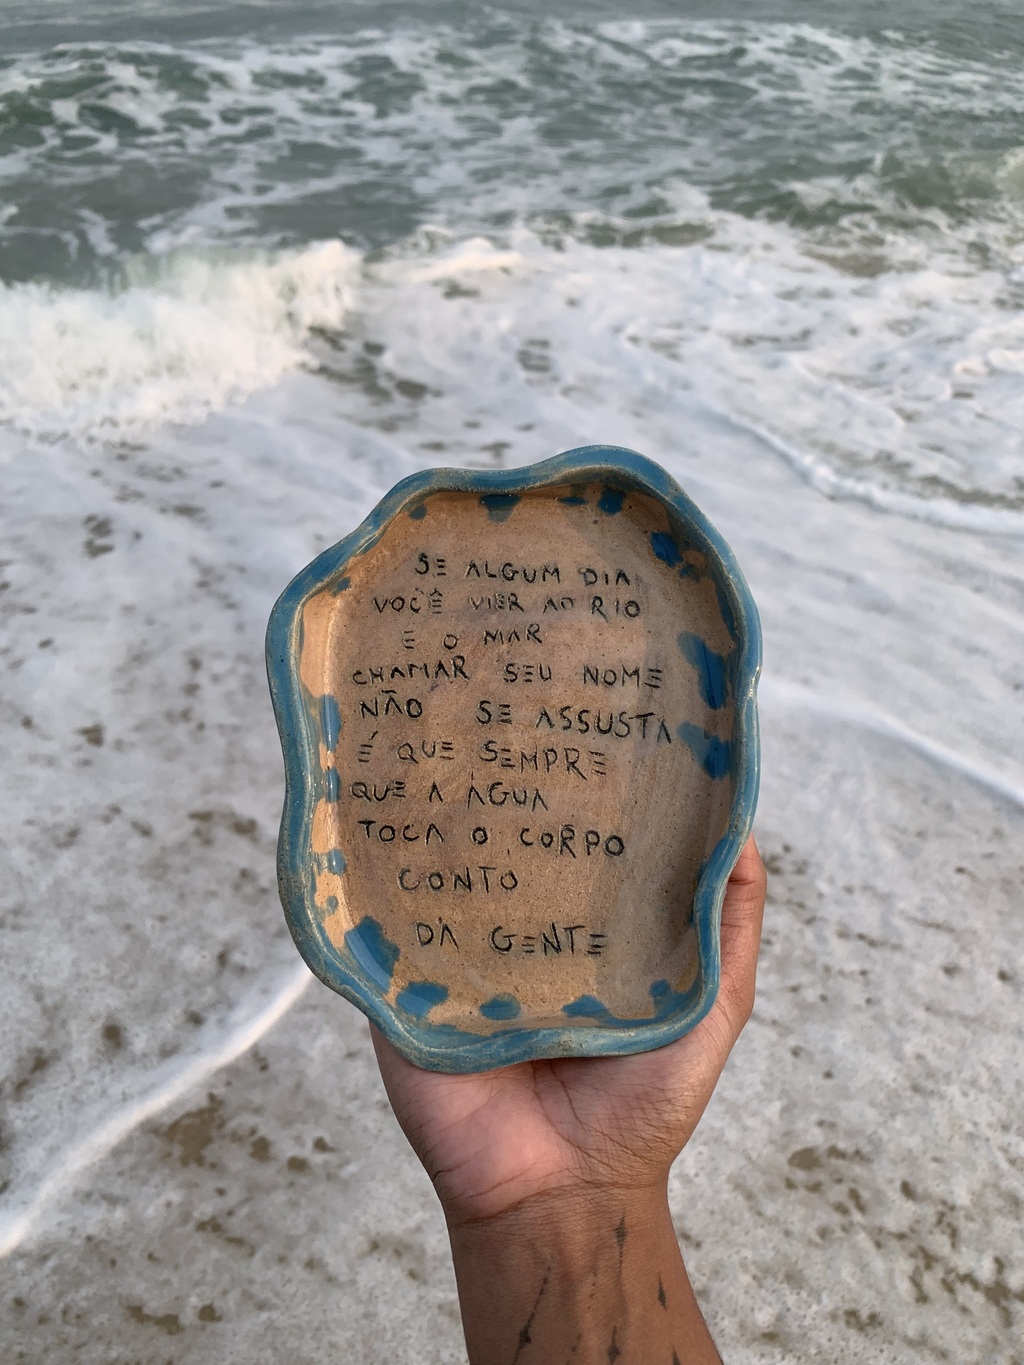 SE ALGUM DIA
VOCÊ VIER AO RIO
E O MAR
CHAMAR SEU NOME
NÃO SE ASSUSTA
É QUE SEMPRE
QUE A ÁGUA
TOCA O CORPO
CONTO
DA GENTE